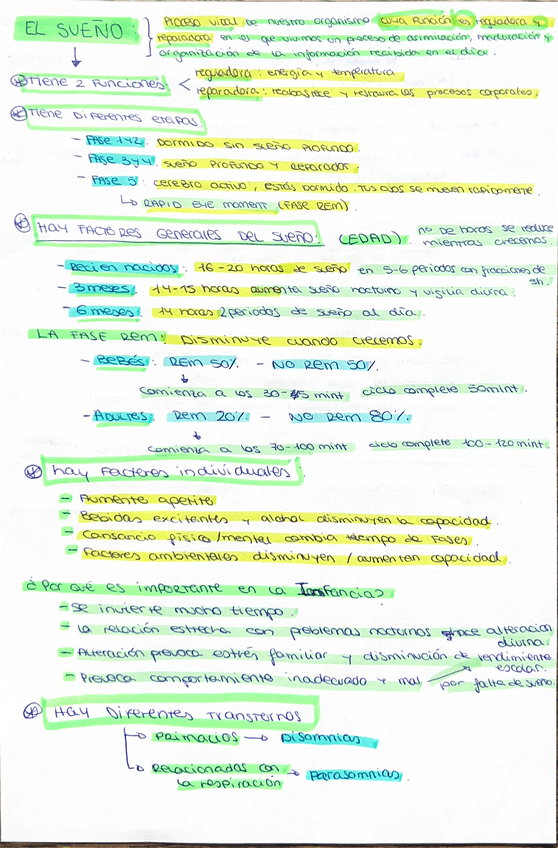 EL SUEÑO:
Proceso vital de nuestro organismo cuya función es reguladora y
reparadora en el que vivimos un proceso de asimilación, maduración y
organización de la información recibida en el día.
Tiene 2 funciones
reguladora: energía y temperatura
reparadora: reabastece y restaura los procesos corporales.
Tiene Diferentes etapas:
- Fase 1 y 2: Dormido sin sueño profundo.
- Fase 3 y 4: sueño profundo y reparador.
- Fase 5: cerebro activo, estás dormido. Tus ojos se mueven rapidamente.
↳ RAPID EYE moment (FASE REM).
HAY FACTORES Generales DEL SUEÑO: (EDAD) nº De horas se reduce
mientras crecemos
- Recien nacidos: 16-20 horas de sueño en 5-6 periodos con fracciones de
3h.
- 3 meses: 14-15 horas aumenta sueño nocturno y vigilia diurna.
- 6 meses: 14 horas 2 periodos de sueño al día.
LA FASE REM: Disminuye cuando crecemos.
- BEBÉS: REM 50% - NO REM 50%.
comienza a los 30-45 mint ciclo completo 50mint.
- Adultos: REM 20% - NO REM 80%.
comienza a los 70-100 mint ciclo completo 100-120 mint.
hay Factores individuales:
- Aumente apetite
- Bebidas excitentes y alchol disminuyen la capacidad.
- Cansancio físico/mental cambia tiempo de Fases.
- Factores ambienteles disminuyen/aumentan capacidad.
¿Por qué es importante en la Infancia?
- Se invierte mucho tiempo.
- La relación estrecha con problemas nocturnos alteracion
diurna.
- Alteración provoca estrés familiar y disminución de rendimiento
escolar.
- Provoca comportamiento inadecuado y mal por falta de sueño
Hay Diferentes Transternos
→ Primarios → Disomnias
↳ Relacionadas con → Parasomnias.
la respiración